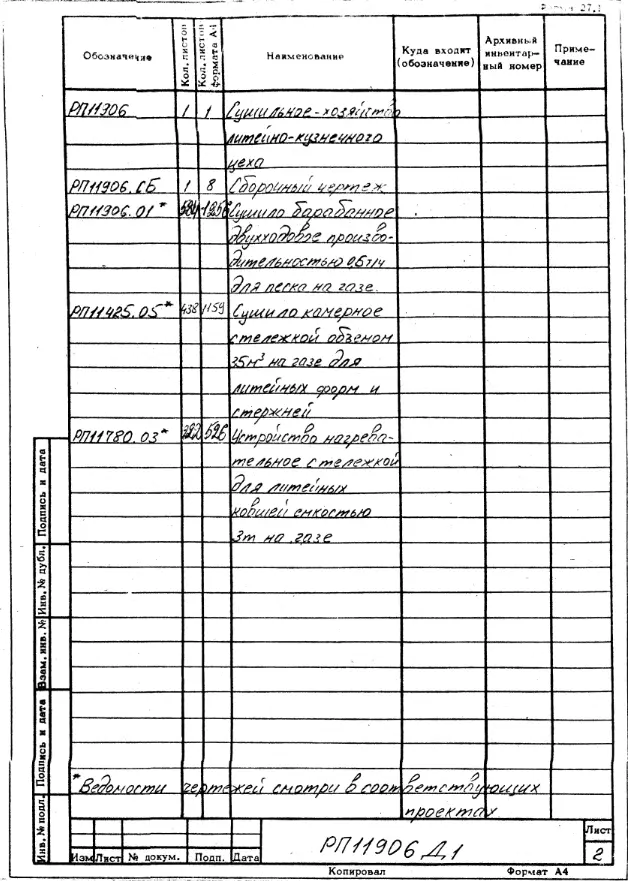 27.1
Обозначение Кол. листов Кол. листов формата А4 Наименование Куда входит (обозначение) Архивный инвентарный номер Примечание
РП11906 1 1 Сушильное хозяйство
литейно-кузнечного
цеха
РП11906.СБ 1 8 Сборочный чертеж
РП11306.01* 584 1256 Сушило барабанное
двухходовое произво-
дительностью 0,6т/ч
для песка на газе.
РП11425.05* 438 1159 Сушило камерное
с тележкой объемом
35м³ на газе для
литейных форм и
стержней
РП11780.03* 322 526 Устройство нагрева-
тельное с тележкой
для литейных
ковшей емкостью
3т на газе
* Ведомости чертежей смотри в соответствующих
проектах
Инв. № подл. Подпись и дата Взам. инв. № Инв. № дубл. Подпись и дата
РП11906 Д1
Лист
2
Изм Лист № докум. Подп. Дата
Копировал Формат А4